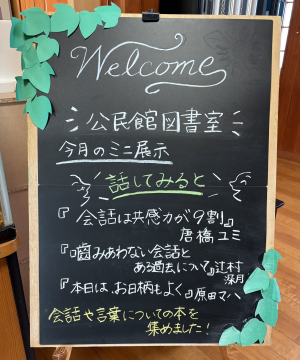 Welcome
公民館図書室
今月のミニ展示
話してみると
『会話は共感力が9割』
唐橋ユミ
『噛みあわない会話と
ある過去について』辻村
深月
『本日は、お日柄もよく』原田マハ
会話や言葉についての本を
集めました!